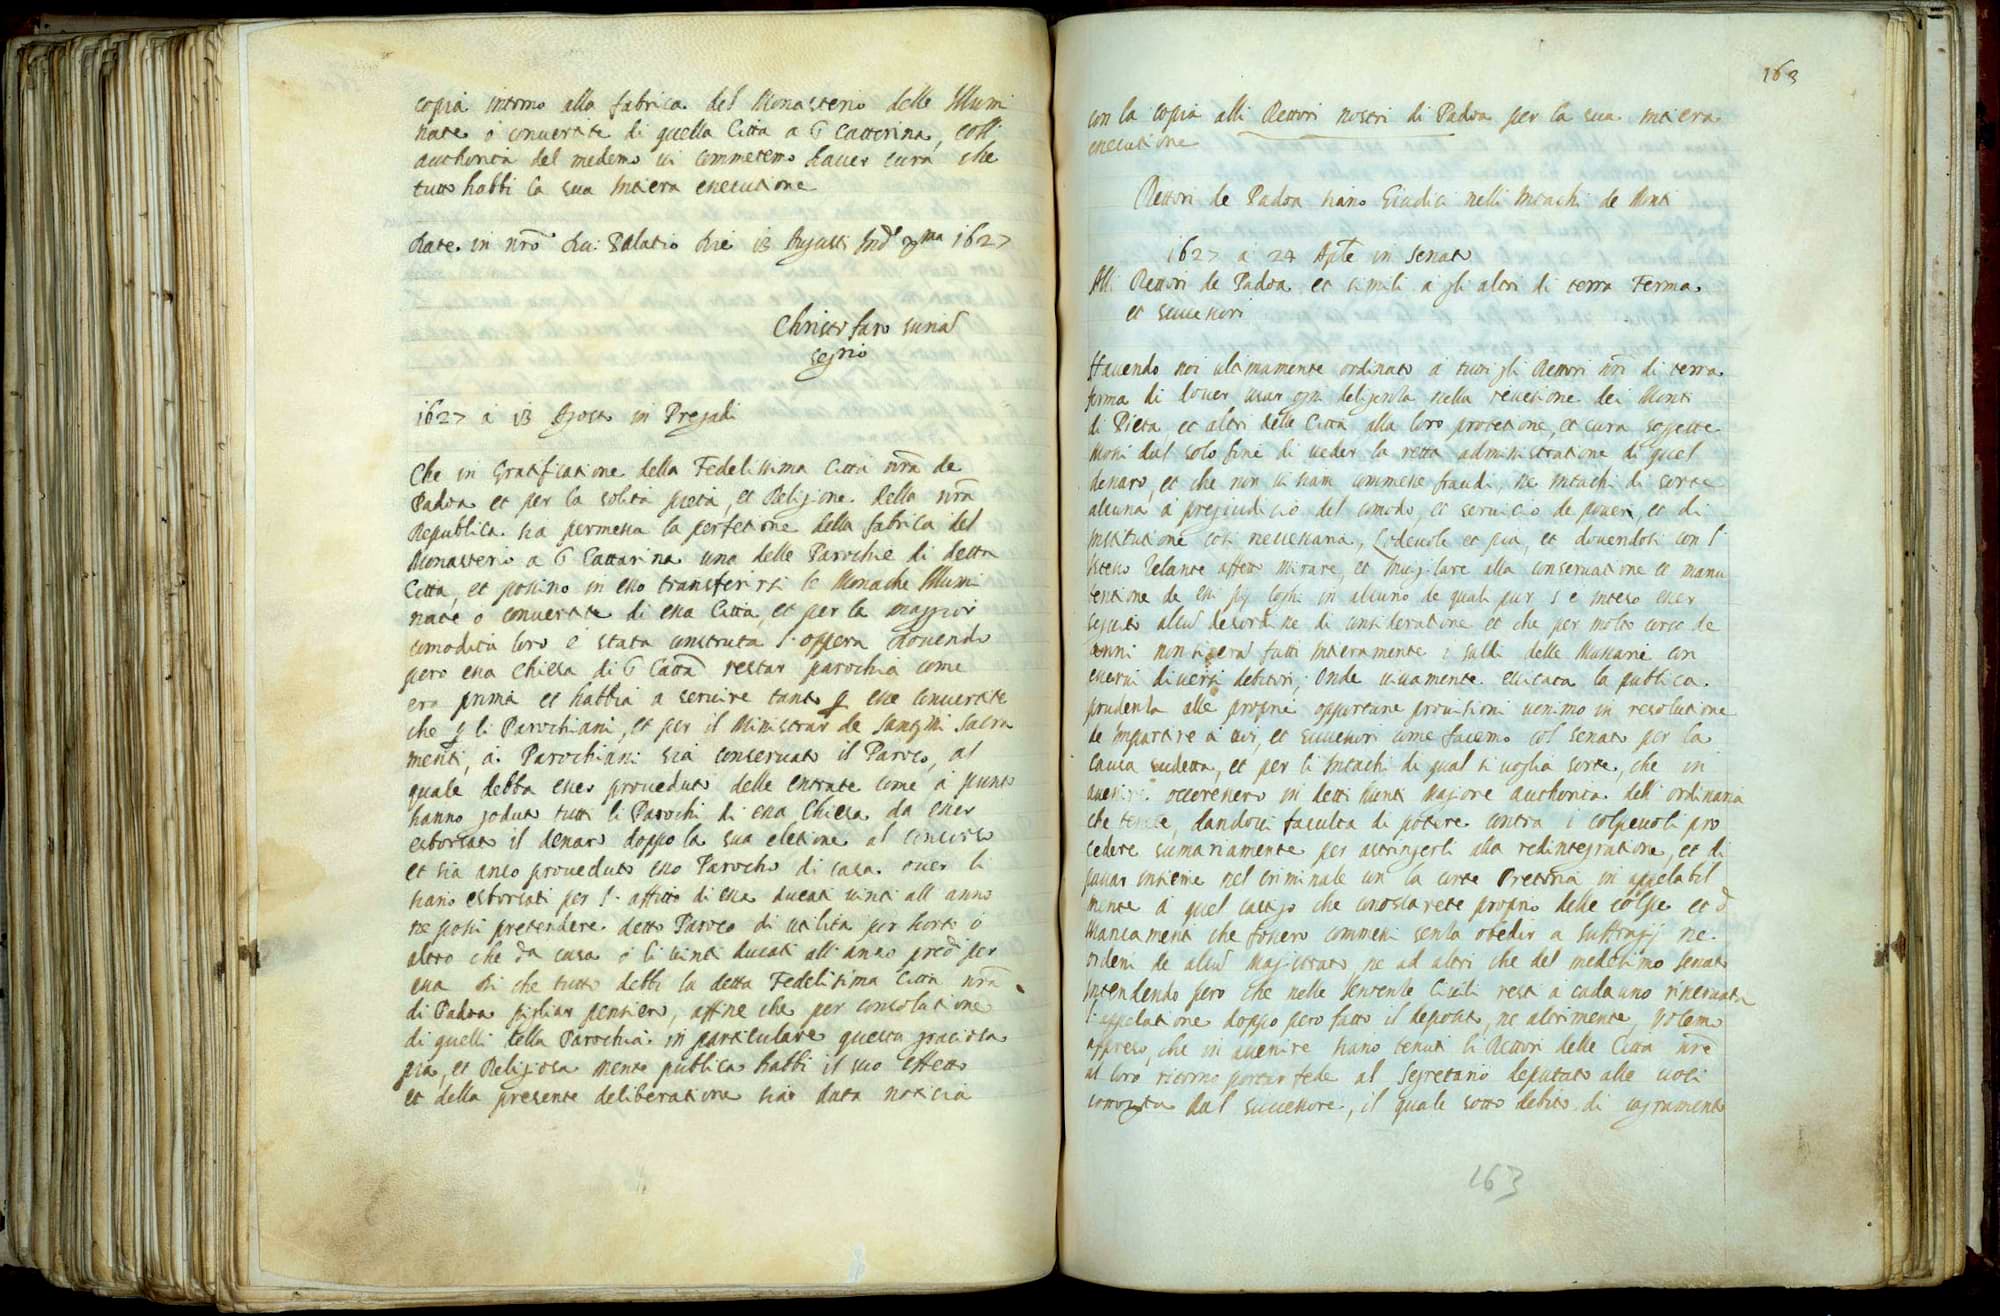 copia intorno alla fabrica del Monasterio delle Illumi
nate ò conuertite di quella Città a S Catterina, coll
authorità del medemo ui commetemo hauer cura che
tutto habbi la sua intiera executione
Date in nrō Duc Palatio Die 13 Augusti Ind.e Xma 1627
Christofaro surian
segrio
1627 a 13 Agosto in Pregadi
Che in Gratificatione della Fedelissima Città nrā de
Padoa et per la solita pietà, et Religione della nrā
Republica sia permessa la perfetione della fabrica del
Monasterio a S Cattarina una delle Parochie di detta
Città, et possino in esso transferirsi le Monache Illumi
nate o conuertite di essa Città, et per la maggior
comodità loro è stata construtta l'oppera douendo
però essa Chiesa di S Cattā restar parochia come
era prima et habbia a seruire tanto ꝑ esse conuertite
che ꝑ li Parochiani, et per il Ministrar de Santissimi Sacra
menti, a Parochiani sia conseruato il Paroco, al
quale debba esser proueduto delle entrate come à punto
hanno goduto tutti li Parochi di essa Chiesa da esser
esborsato il denaro doppo la sua eletione al concorso
et sia anco proueduto esso Parocho di casa ouer li
siano esborsati per l'affitto di essa ducati uinti all'anno
ne possi pretendere detto Paroco di utilità per horto ò
altro che da casa ò li uinti ducati all'anno pred.i per
essa Di che tutto debbi la detta Fedelissima Città nrā
di Padoa pigliar pensiero, affine che per consolatione
di quelli della Parochia in particulare questa gratiosa
pia, et Religiosa mente publica habbi il suo effetto
et della presente deliberatione sia data notitia
163
con la copia alli Rettori nostri di Padoa per la sua intiera
executione
Rettori de Padoa siano Giudici nelli Intachi de Monti
1627 a 24 7bre in Senato
Alli Rettori de Padoa et simili a gli altri di terra Ferma
et successori
Hauendo noi ultimamente ordinato à tutti gli Rettori nrī di terra
ferma di douer usar ogni deligenza nella reuisione dei Monti
di Pietà et altri delle Città alla loro protetione, et cura soggette
Mossi dal solo fine di ueder la retta administratione di quel
denaro, et che non ui siam commesse fraudi, ne Intachi di sorte
alcuna à pregiudicio del comodo, et seruicio de poueri, et di
institutione così necessaria, Lodeuole et pia, et douendosi con l'
istesso zelante affetto mirare, et inuigilare alla conseruatione et manu
tentione de essi pij loghi in alcuno de quali pur s'è inteso esser
seguito alcun desordine di consideratione et che per molto corso de
anni non si era fatti intieramente i saldi delle Massarie con
esserui diuersi debitori, Onde uiuamente eccitata la publica
prudenza alle proprie opportune prouisioni uenimo in resolutione
de impartire à uoi, et successori come facemo col senato per la
causa sudetta, et per li Intachi di qual si uoglia sorte, che in
auenire occoressero in detti Monti Maggiore authorità dell'ordinaria
che tenete, dandoui facultà di potere contra i colpeuoli pro
cedere sumariamente per astringerli alla redintegratione, et di
punir insieme nel criminale con la corte Pretoria in appelabil
mente à quel castigo che conoscerete proprio delle colpe et
Mancamenti che fossero commessi senza obedir a suffragij ne
ordeni de alcun Magistrato, ne ad altri che del medesimo Senato
Intendendo però che nelle sentenze Ciuili resti à cadauno riseruata
l'appelatione doppo però fatto il deposito, ne altrimente, Volemo
appresso, che in auenire siano tenuti li Rettori delle Città nrē
al loro ritorno portar fede al Segretario deputato alle uoci
sottoscritta dal successore, il quale sotto debito di sagramento
163